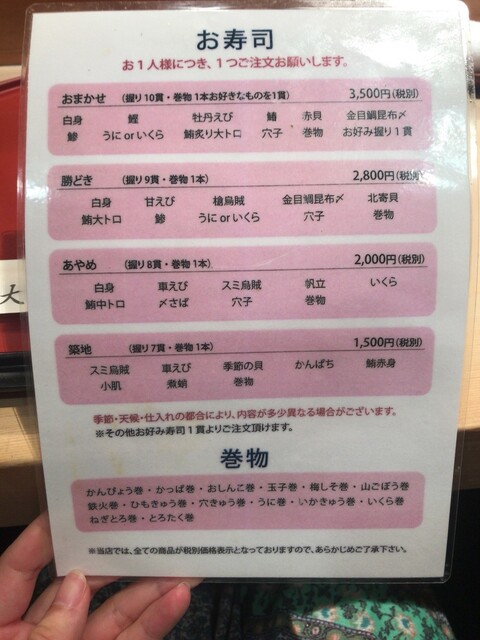 お寿司
お1人様につき、1つご注文お願いします。
おまかせ （握り10貫・巻物1本お好きなものを1貫） 3,500円(税別)
白身 鰹 牡丹えび 鮪 赤貝 金目鯛昆布〆
鯵 うに or いくら 鮪炙り大トロ 穴子 巻物 お好み握り1貫
勝どき （握り9貫・巻物1本） 2,800円(税別)
白身 甘えび 槍烏賊 金目鯛昆布〆 北寄貝
鮪大トロ 鯵 うに or いくら 穴子 巻物
あやめ （握り8貫・巻物1本） 2,000円(税別)
白身 車えび スミ烏賊 帆立 いくら
鮪中トロ 〆さば 穴子 巻物
築地 （握り7貫・巻物1本） 1,500円(税別)
スミ烏賊 車えび 季節の貝 かんぱち 鮪赤身
小肌 煮蛸 巻物
季節・天候・仕入れの都合により、内容が多少異なる場合がございます。
※その他お好み寿司1貫よりご注文頂けます。
巻物
かんぴょう巻・かっぱ巻・おしんこ巻・玉子巻・梅しそ巻・山ごぼう巻
鉄火巻・ひもきゅう巻・穴きゅう巻・うに巻・いかきゅう巻・いくら巻
ねぎとろ巻・とろたく巻
※当店では、全ての商品が税別価格表示となっておりますので、あらかじめご了承下さい。
大